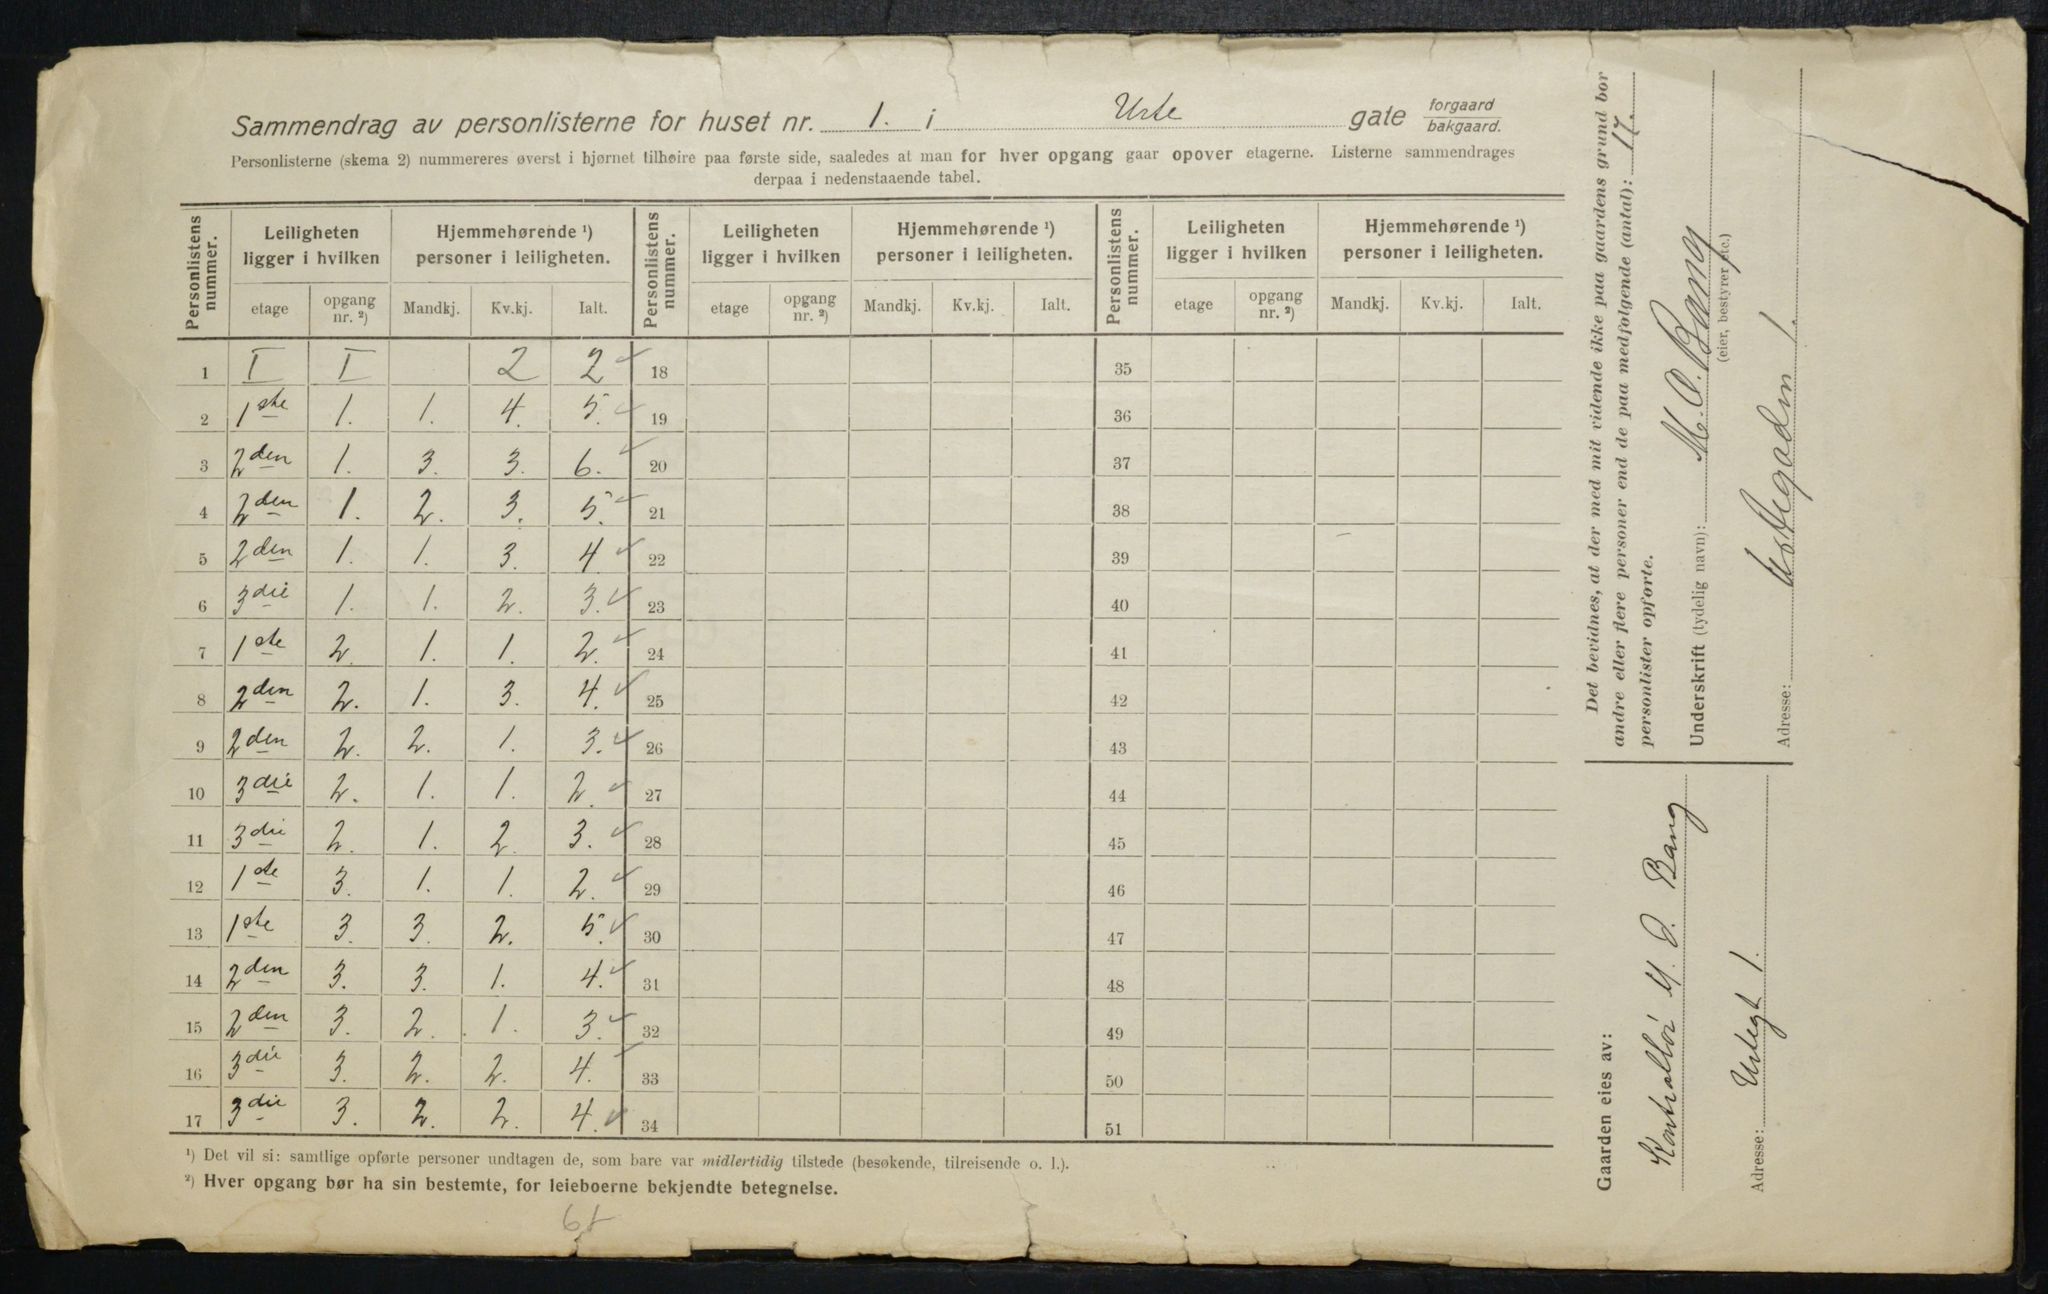 Sammendrag av personlisterne for huset nr. 1. i Urte gate forgaard bakgaard.
Personlisterne (skema 2) nummereres øverst i hjørnet tilhøire paa første side, saaledes at man for hver opgang gaar opover etagerne. Listerne sammendrages
derpaa i nedenstaaende tabel.
Personlistens nummer. Leiligheten ligger i hvilken Hjemmehørende ¹) personer i leiligheten. Personlistens nummer. Leiligheten ligger i hvilken Hjemmehørende ¹) personer i leiligheten. Personlistens nummer. Leiligheten ligger i hvilken Hjemmehørende ¹) personer i leiligheten.
etage opgang nr. ²) Mandkj. Kv.kj. Ialt. etage opgang nr. ²) Mandkj. Kv.kj. Ialt. etage opgang nr. ²) Mandkj. Kv.kj. Ialt.
1 I I 2 2 18 35
2 1ste 1. 1. 4. 5. 19 36
3 2den 1. 3. 3. 6. 20 37
4 2den 1. 2. 3. 5. 21 38
5 2den 1. 1. 3. 4. 22 39
6 3die 1. 1. 2. 3. 23 40
7 1ste 2. 1. 1. 2. 24 41
8 2den 2. 1. 3. 4. 25 42
9 2den 2. 2. 1. 3. 26 43
10 3die 2. 1. 1. 2. 27 44
11 3die 2. 1. 2. 3. 28 45
12 1ste 3. 1. 1. 2. 29 46
13 1ste 3. 3. 2. 5. 30 47
14 2den 3. 3. 1. 4. 31 48
15 2den 3. 2. 1. 3. 32 49
16 3die 3. 2. 2. 4. 33 50
17 3die 3. 2. 2. 4. 34 51
¹) Det vil si: samtlige opførte personer undtagen de, som bare var midlertidig tilstede (besøkende, tilreisende o. l.).
²) Hver opgang bør ha sin bestemte, for leieboerne bekjendte betegnelse.
61
Det bevidnes, at der med mit vidende ikke paa gaardens grund bor
andre eller flere personer end de paa medfølgende (antal): 17.
personlister opførte.
Underskrift (tydelig navn): M. O. Bang
(eier, bestyrer etc.)
Adresse: Urtegaden 1.
Gaarden eies av:
Kontrollør M. O. Bang
Adresse: Urtegt 1.